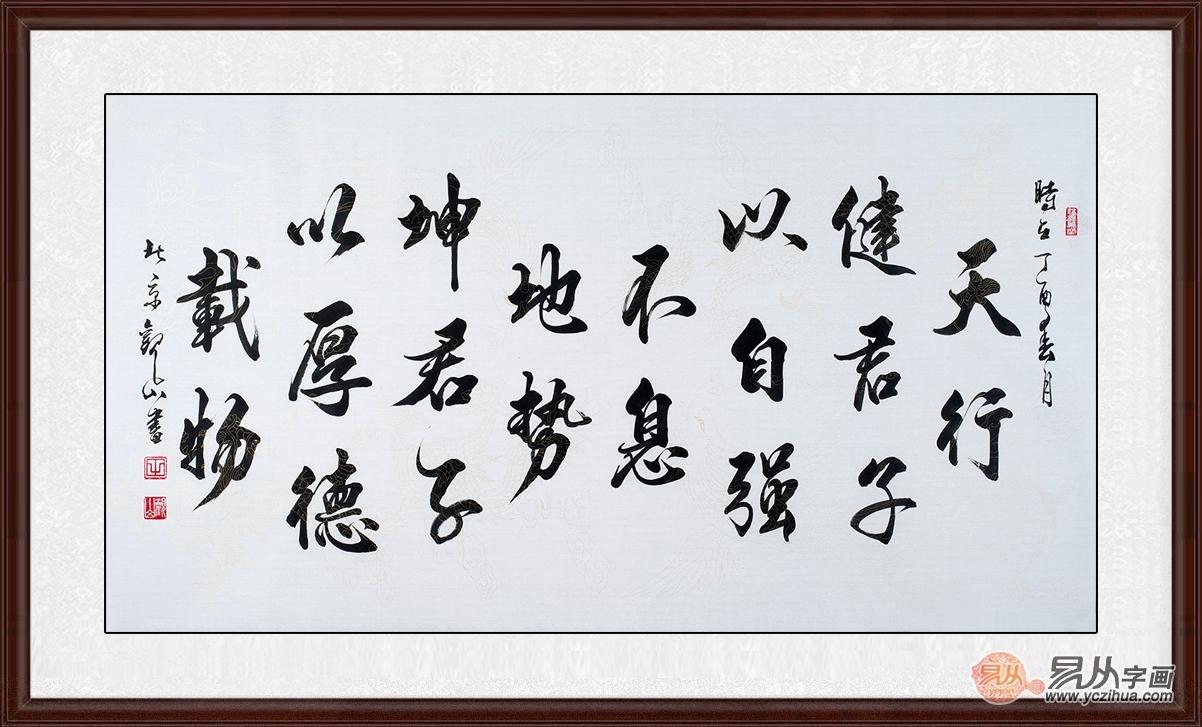 時在丁酉春月
天行
健君子
以自强
不息
地势
坤君子
以厚德
載物
北京觀山書
易从
yiyon
易从字画
www.yczihua.com